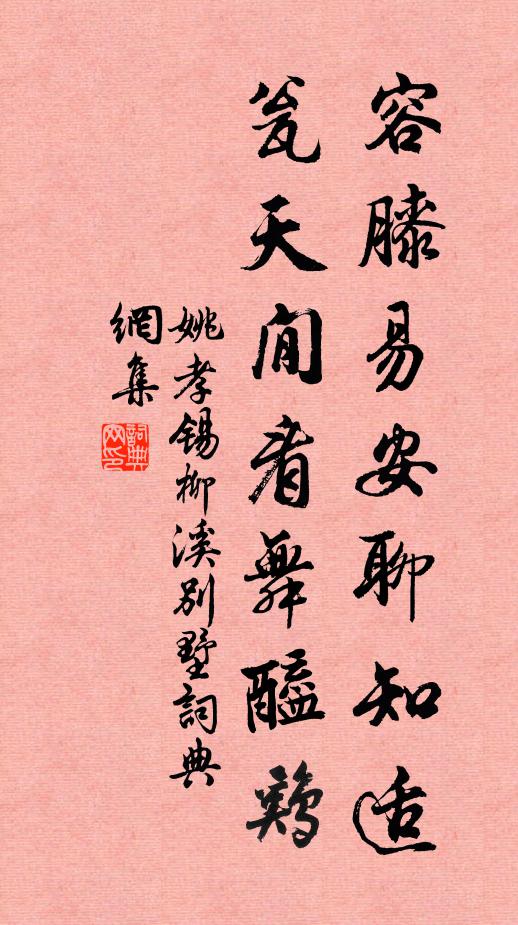 容膝易安聊知适
瓮天间看舞醯鸡
姚孝锡柳溪别墅词典
网集
词典网印